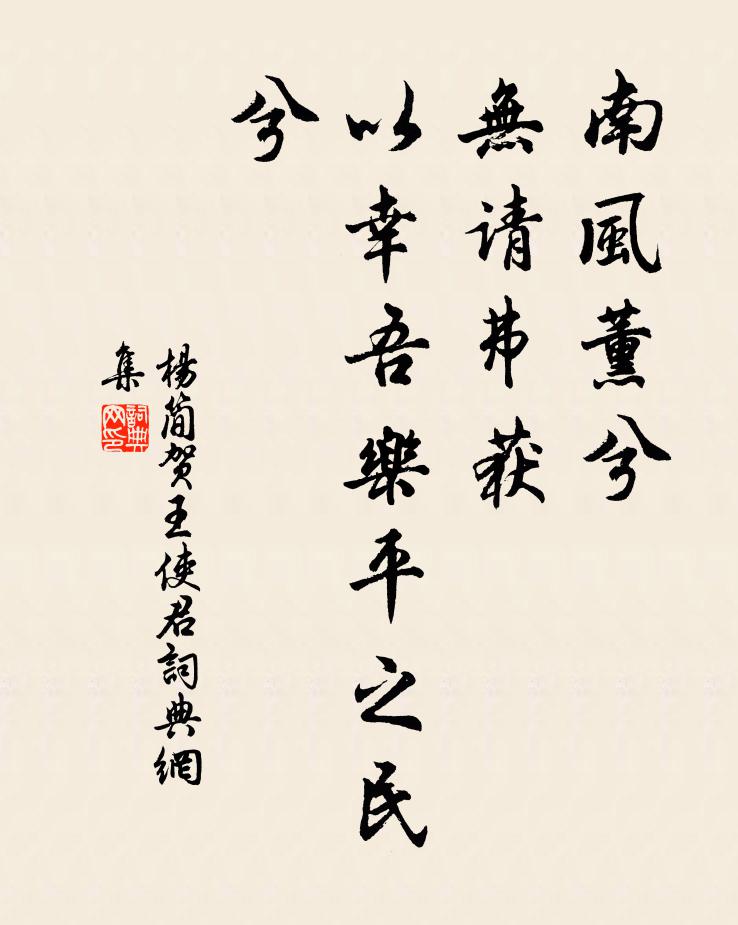 南風薰兮
無请弗获
以幸吾樂平之民
兮
楊简贺王使君詞典網
集
詞典
网印